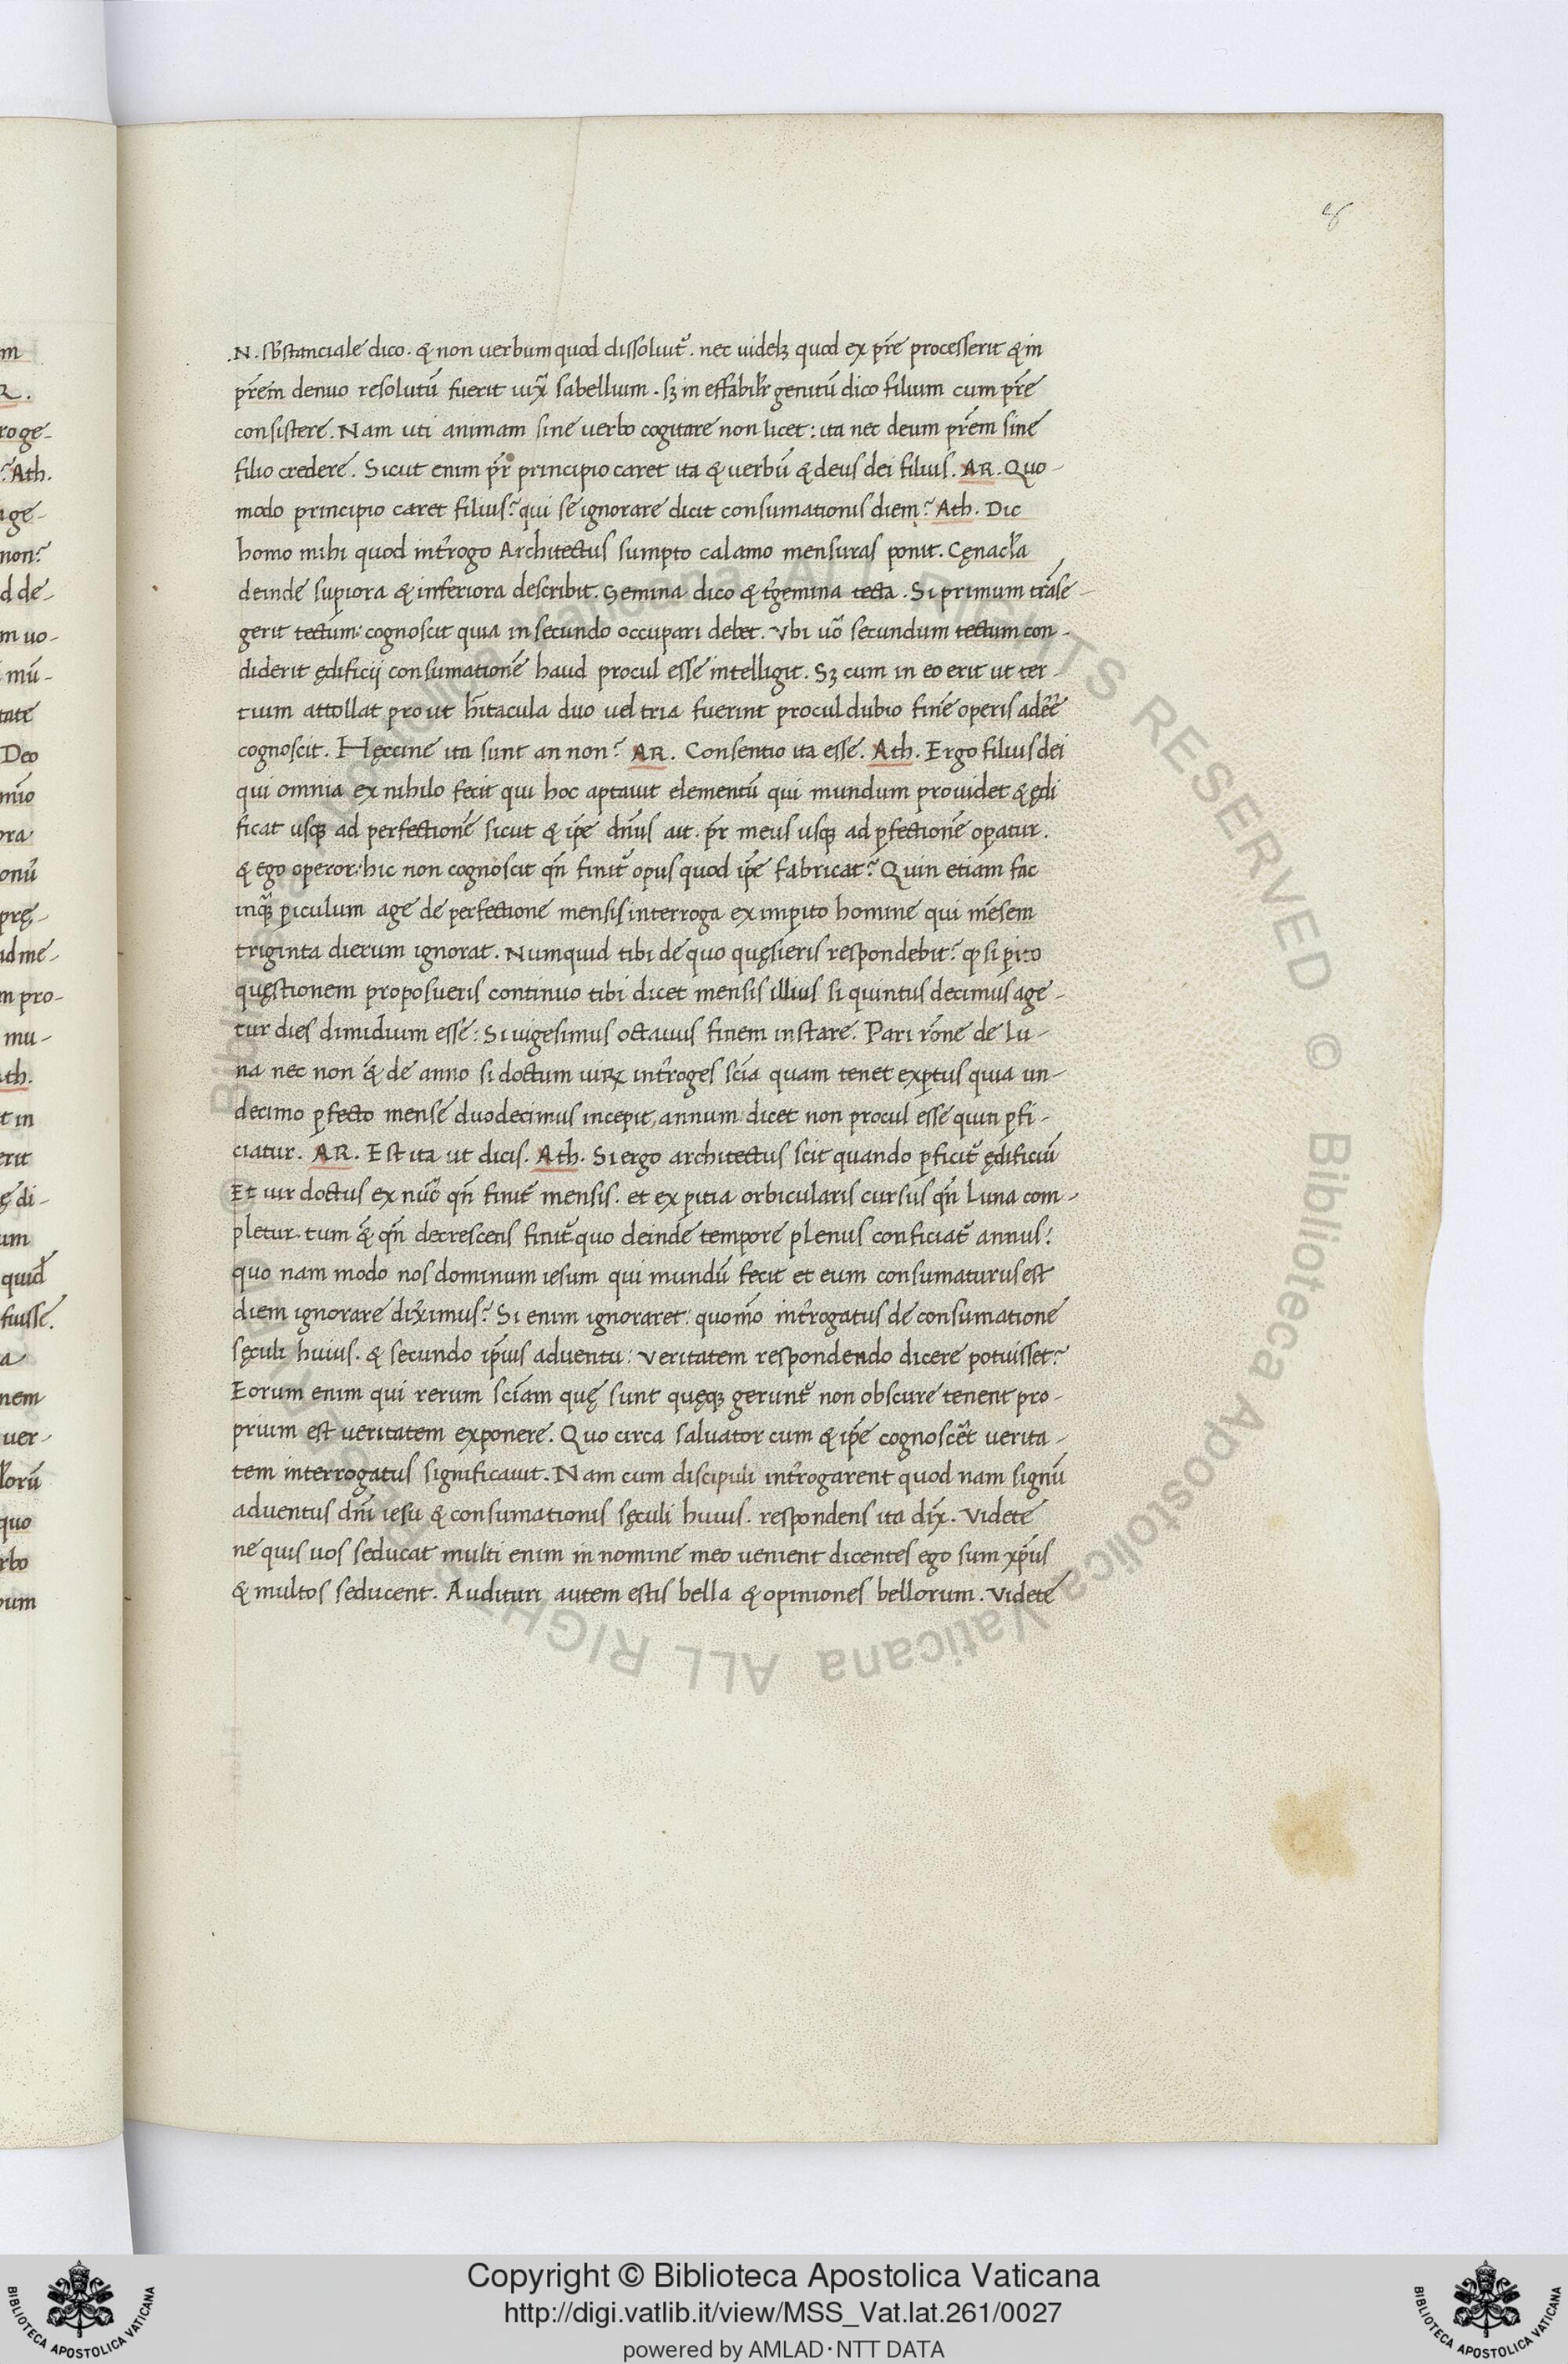 8
.N. sb̄stanciale dico. & non uerbum quod dissoluit᷑. nec uidelꝫ quod ex pr̄e processerit & in
pr̄em denuo resolutū fuerit iuxᷓ sabellium. sꝫ in effabilr̄ genitū dico filium cum pr̄e
consistere. Nam uti animam sine uerbo cogitare non licet: ita nec deum pr̄em sine
filio credere. Sicut enim pr̄ principio caret ita & uerbū & deus dei filius. AR. Quo-
modo principio caret filius? qui se ignorare dicit consumationis diem? Ath. Dic
homo mihi quod intr̄rogo Architectus sumpto calamo mensuras ponit. Cęnacl̄a
deinde supiora & inferiora describit. Gemina dico & t͛gemina tecta. Si primum trāse-
gerit tectum: cognoscit quia in secundo occupari debet. Vbi uō secundum tectum con-
diderit ędificij consumationē haud procul esse intelligit. Sꝫ cum in eo erit ut ter-
tium attollat prout hītacula duo uel tria fuerint procul dubio finē operis adēē
cognoscit. Hęccine ita sunt an non? AR. Consentio ita esse. Ath. Ergo filius dei
qui omnia ex nihilo fecit qui hoc aptauit elementū qui mundum prouidet & ędi
ficat usqꝫ ad perfectionē sicut & ip̄e dn̄us ait. pr̄ meus usqꝫ ad ꝑfectionē oꝑatur.
& ego operor: hic non cognoscit qn̄ finit᷑ opus quod ip̄e fabricat? Quin etiam fac
inqᷓ ꝑiculum age de perfectione mensis interroga ex imꝑito homine qui mēsem
triginta dierum ignorat. Numquid tibi de quo quęsieris respondebit? ꝙ si ꝑito
quęstionem proposueris continuo tibi dicet mensis illius si quintus decimus age-
tur dies dimidium esse: Si uigesimus octauus finem instare. Pari rōne de lu-
na nec non & de anno si doctum uirꝝ intr̄roges scīa quam tenet exꝑtus quia un-
decimo ꝑfecto mense duodecimus incepit, annum dicet non procul esse quin ꝑfi-
ciatur. AR. Est ita ut dicis. Ath. Si ergo architectus scit quando ꝑficit᷑ ędificiū
Et uir doctus ex nūo qn̄ finit᷑ mensis. et ex ꝑitia orbicularis cursus qn̄ Luna com-
pletur. tum & qn̄ decrescens finit᷑ quo deinde tempore plenus conficiat᷑ annus?
quo nam modo nos dominum iesum qui mundū fecit et eum consumaturus est
diem ignorare diximus? Si enim ignoraret: quomō intr̄rogatus de consumatione
sęculi huius. & secundo ip̄ius aduentu: veritatem respondendo dicere potuisset?
Eorum enim qui rerum scīam quę sunt quęqꝫ gerunt᷑ non obscure tenent pro-
prium est ueritatem exponere. Quo circa saluator cum & ip̄e cognoscēt uerita-
tem interrogatus significauit. Nam cum discipuli intr̄rogarent quod nam signū
aduentus dn̄i iesu & consumationis sęculi huius. respondens ita dix̄. Videte
ne quis uos seducat multi enim in nomine meo uenient dicentes ego sum xp̄us
& multos seducent. Audituri autem estis bella & opiniones bellorum. Videte
Copyright © Biblioteca Apostolica Vaticana
http://digi.vatlib.it/view/MSS_Vat.lat.261/0027
powered by AMLAD·NTT DATA